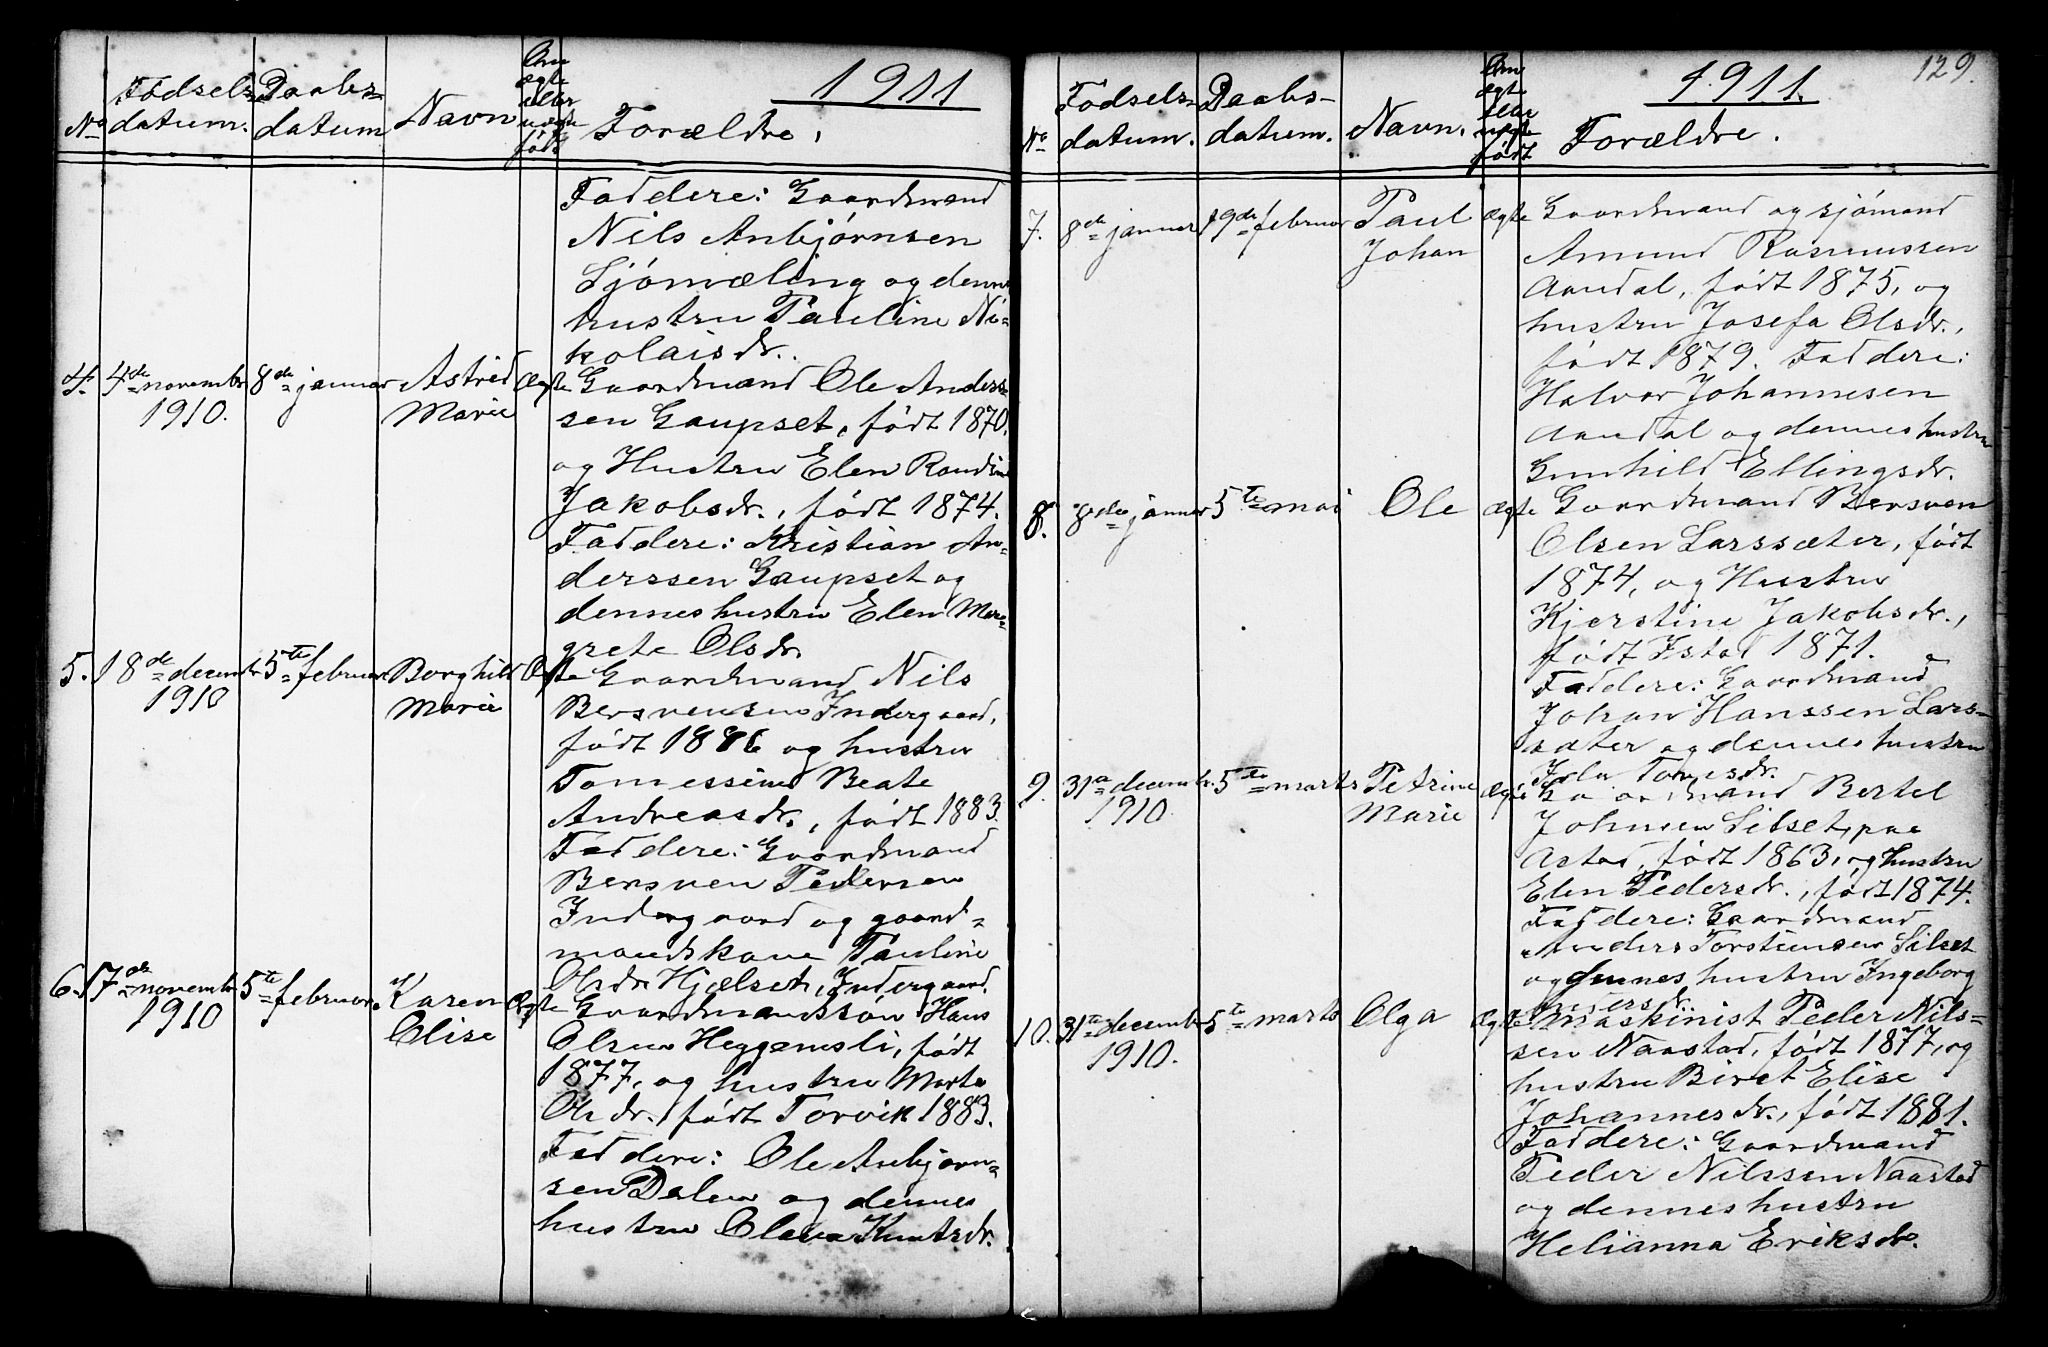 1911
No
Fødsels-
datum.
Daabs-
datum
Navn
Om
ægte
eller
uægte
født
Forældre.
Faddere: Gaardmand
Nils Anbjørnsen
Sjømæling og dennes
hustru Pauline Ni-
kolaisdr.
4. 4de novembr 1910. 8de januar Astrid Marie Ægte
Gaardmand Ole Anders-
sen Gaupset, født 1870.
og Hustru Elen Randine
Jakobsdr., født 1874.
Faddere: Kristian An-
derssen Gaupset og
dennes hustru Elen Mar-
grete Olsdr.
5. 18de decembr 1910 5te februar Borghild Marie Ægte
Gaardmand Nils
Bersvensen Indergaard,
født 1886 og hustru
Tomessine Beate
Andreasdr., født 1883.
Faddere: Gaardmand
Bersven Pedersen
Indergaard og gaard-
mandskone Pauline
Olsdr. Hjelset, Indergaard.
6. 17de novembr 1910 5te februar. Karen Elise Ægte
Gaardmandssøn Hans
Olsen Heggemsli, født
1877, og hustru Marta
Olsdr. født Torvik 1883.
Faddere: Ole Anbjørn-
sen Dalen og dennes
hustru Olava Knutsdr.
129.
1911.
No
Fødsels-
datum.
Daabs-
datum.
Navn.
Om
ægte
eller
uægte
født
Forældre.
7. 8de januar 19de februar Paul Johan ægte
Gaardmand og sjømand
Amund Rasmussen
Aandal, født 1875, og
hustru Josefa Olsdr.,
født 1879. Faddere:
Halvor Johannesen
Aandal og dennes hustru
Gunhild Ellingsdr.
8. 8de januar 5te mai Ole ægte
Gaardmand Bersven
Olsen Larssæter, født
1874, og Hustru
Kjerstine Jakobsdr.,
født Istad 1871.
Faddere: Gaardmand
Johan Hanssen Lars-
sæter og dennes hustru
9. 31te decembr. 1910 5te marts Petrine Marie ægte
Gaardmand Bertel
Johnsen Silset, paa
Astad, født 1863, og hustru
Elen Pedersdr., født 1874.
Faddere: Gaardmand
Anders Torstensen Silset
og dennes hustru Ingeborg
Andersdr.
10. 31te decembr 1910. 5te marts Olga Ægte
Maskinist Peder Nils-
sen Naastad, født 1877, og
hustru Biret Elise
Johannesdr., født 1881.
Faddere: Gaardmand
Peder Nilssen Naastad
og dennes hustru
Helianna Eriksdr.